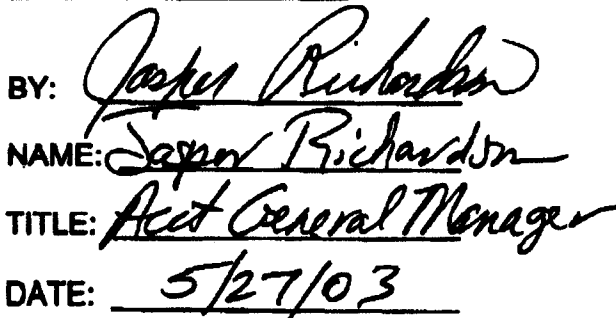 BY: Jasper Richardson
NAME: Jasper Richardson
TITLE: Acct General Manager
DATE: 5/27/03